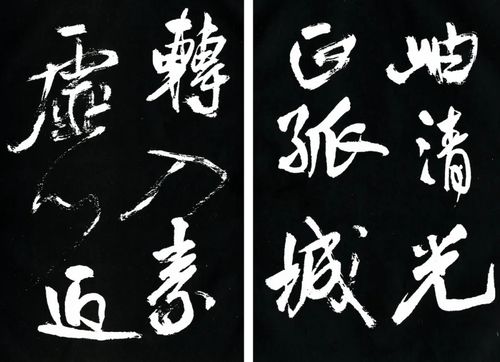 岫清光
正孤城
轉入素
虛心